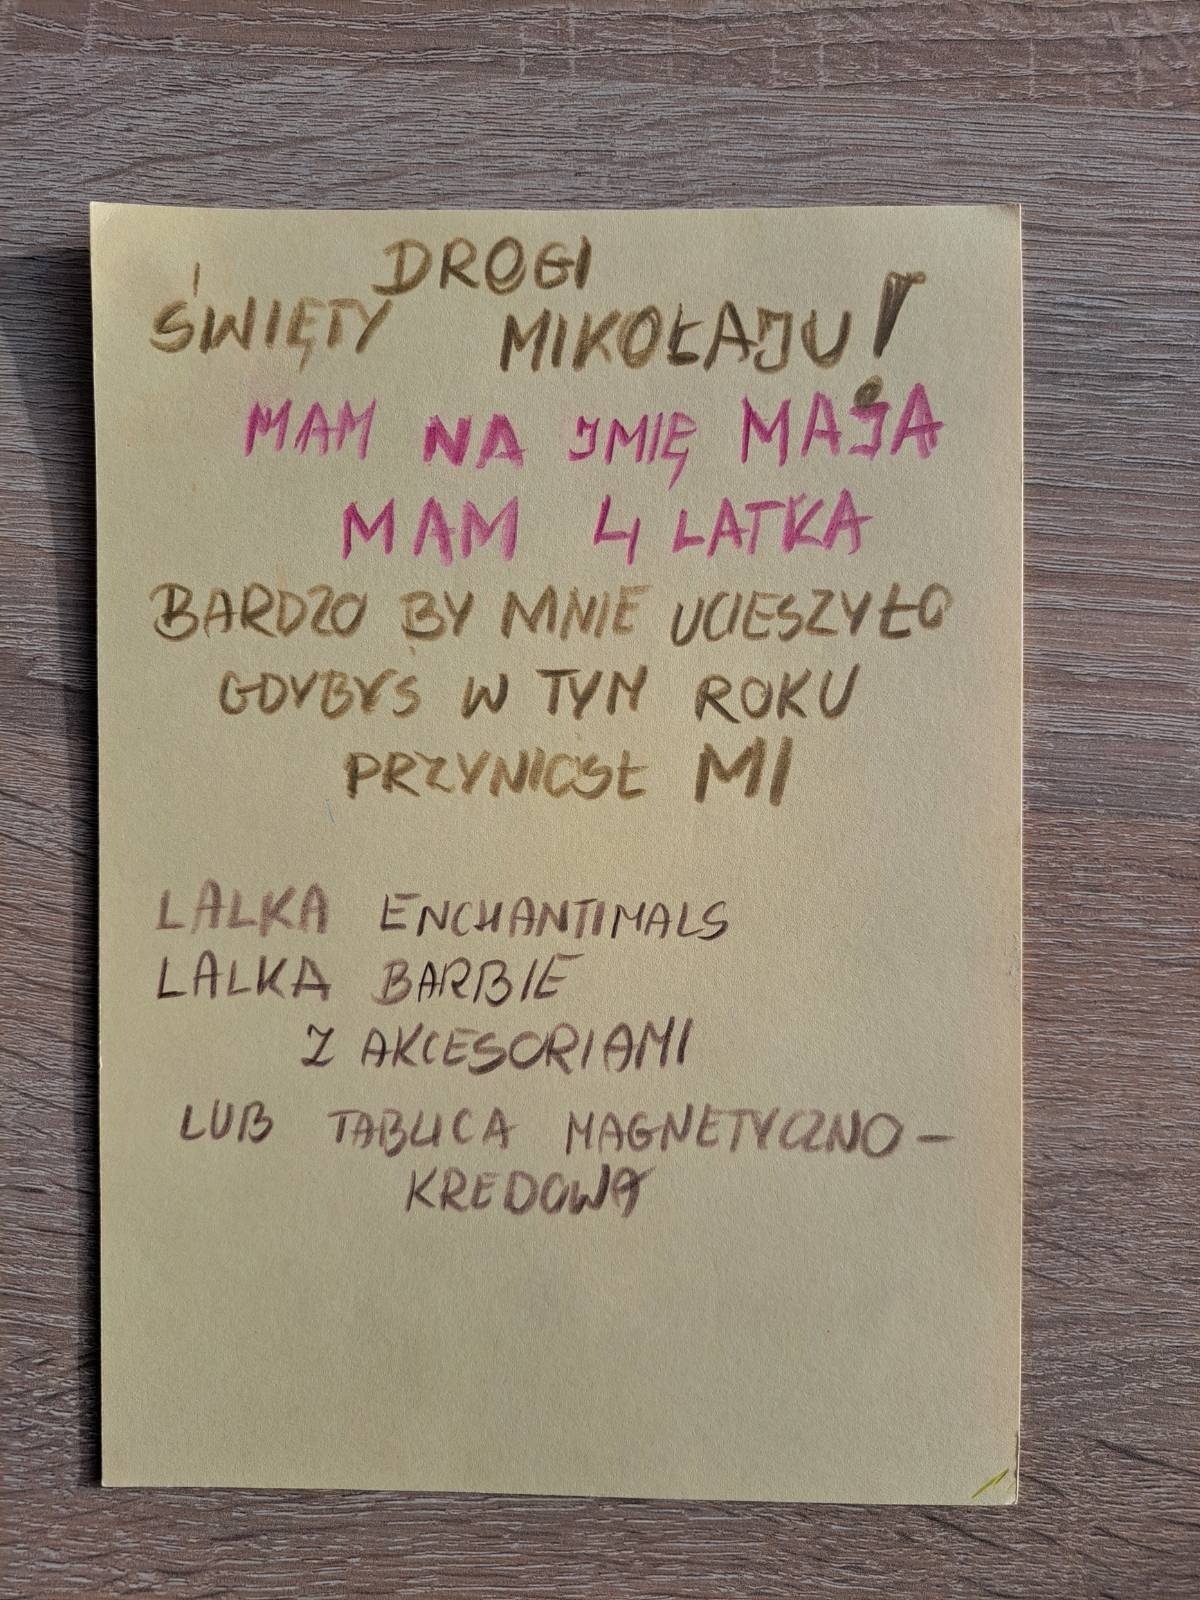 DROGI
ŚWIĘTY MIKOŁAJU!
MAM NA IMIĘ MAJA
MAM 4 LATKA
BARDZO BY MNIE UCIESZYŁO
GDYBYŚ W TYM ROKU
PRZYNIOSŁ MI
LALKA ENCHANTIMALS
LALKA BARBIE
Z AKCESORIAMI
LUB TABLICA MAGNETYCZNO-
KREDOWA